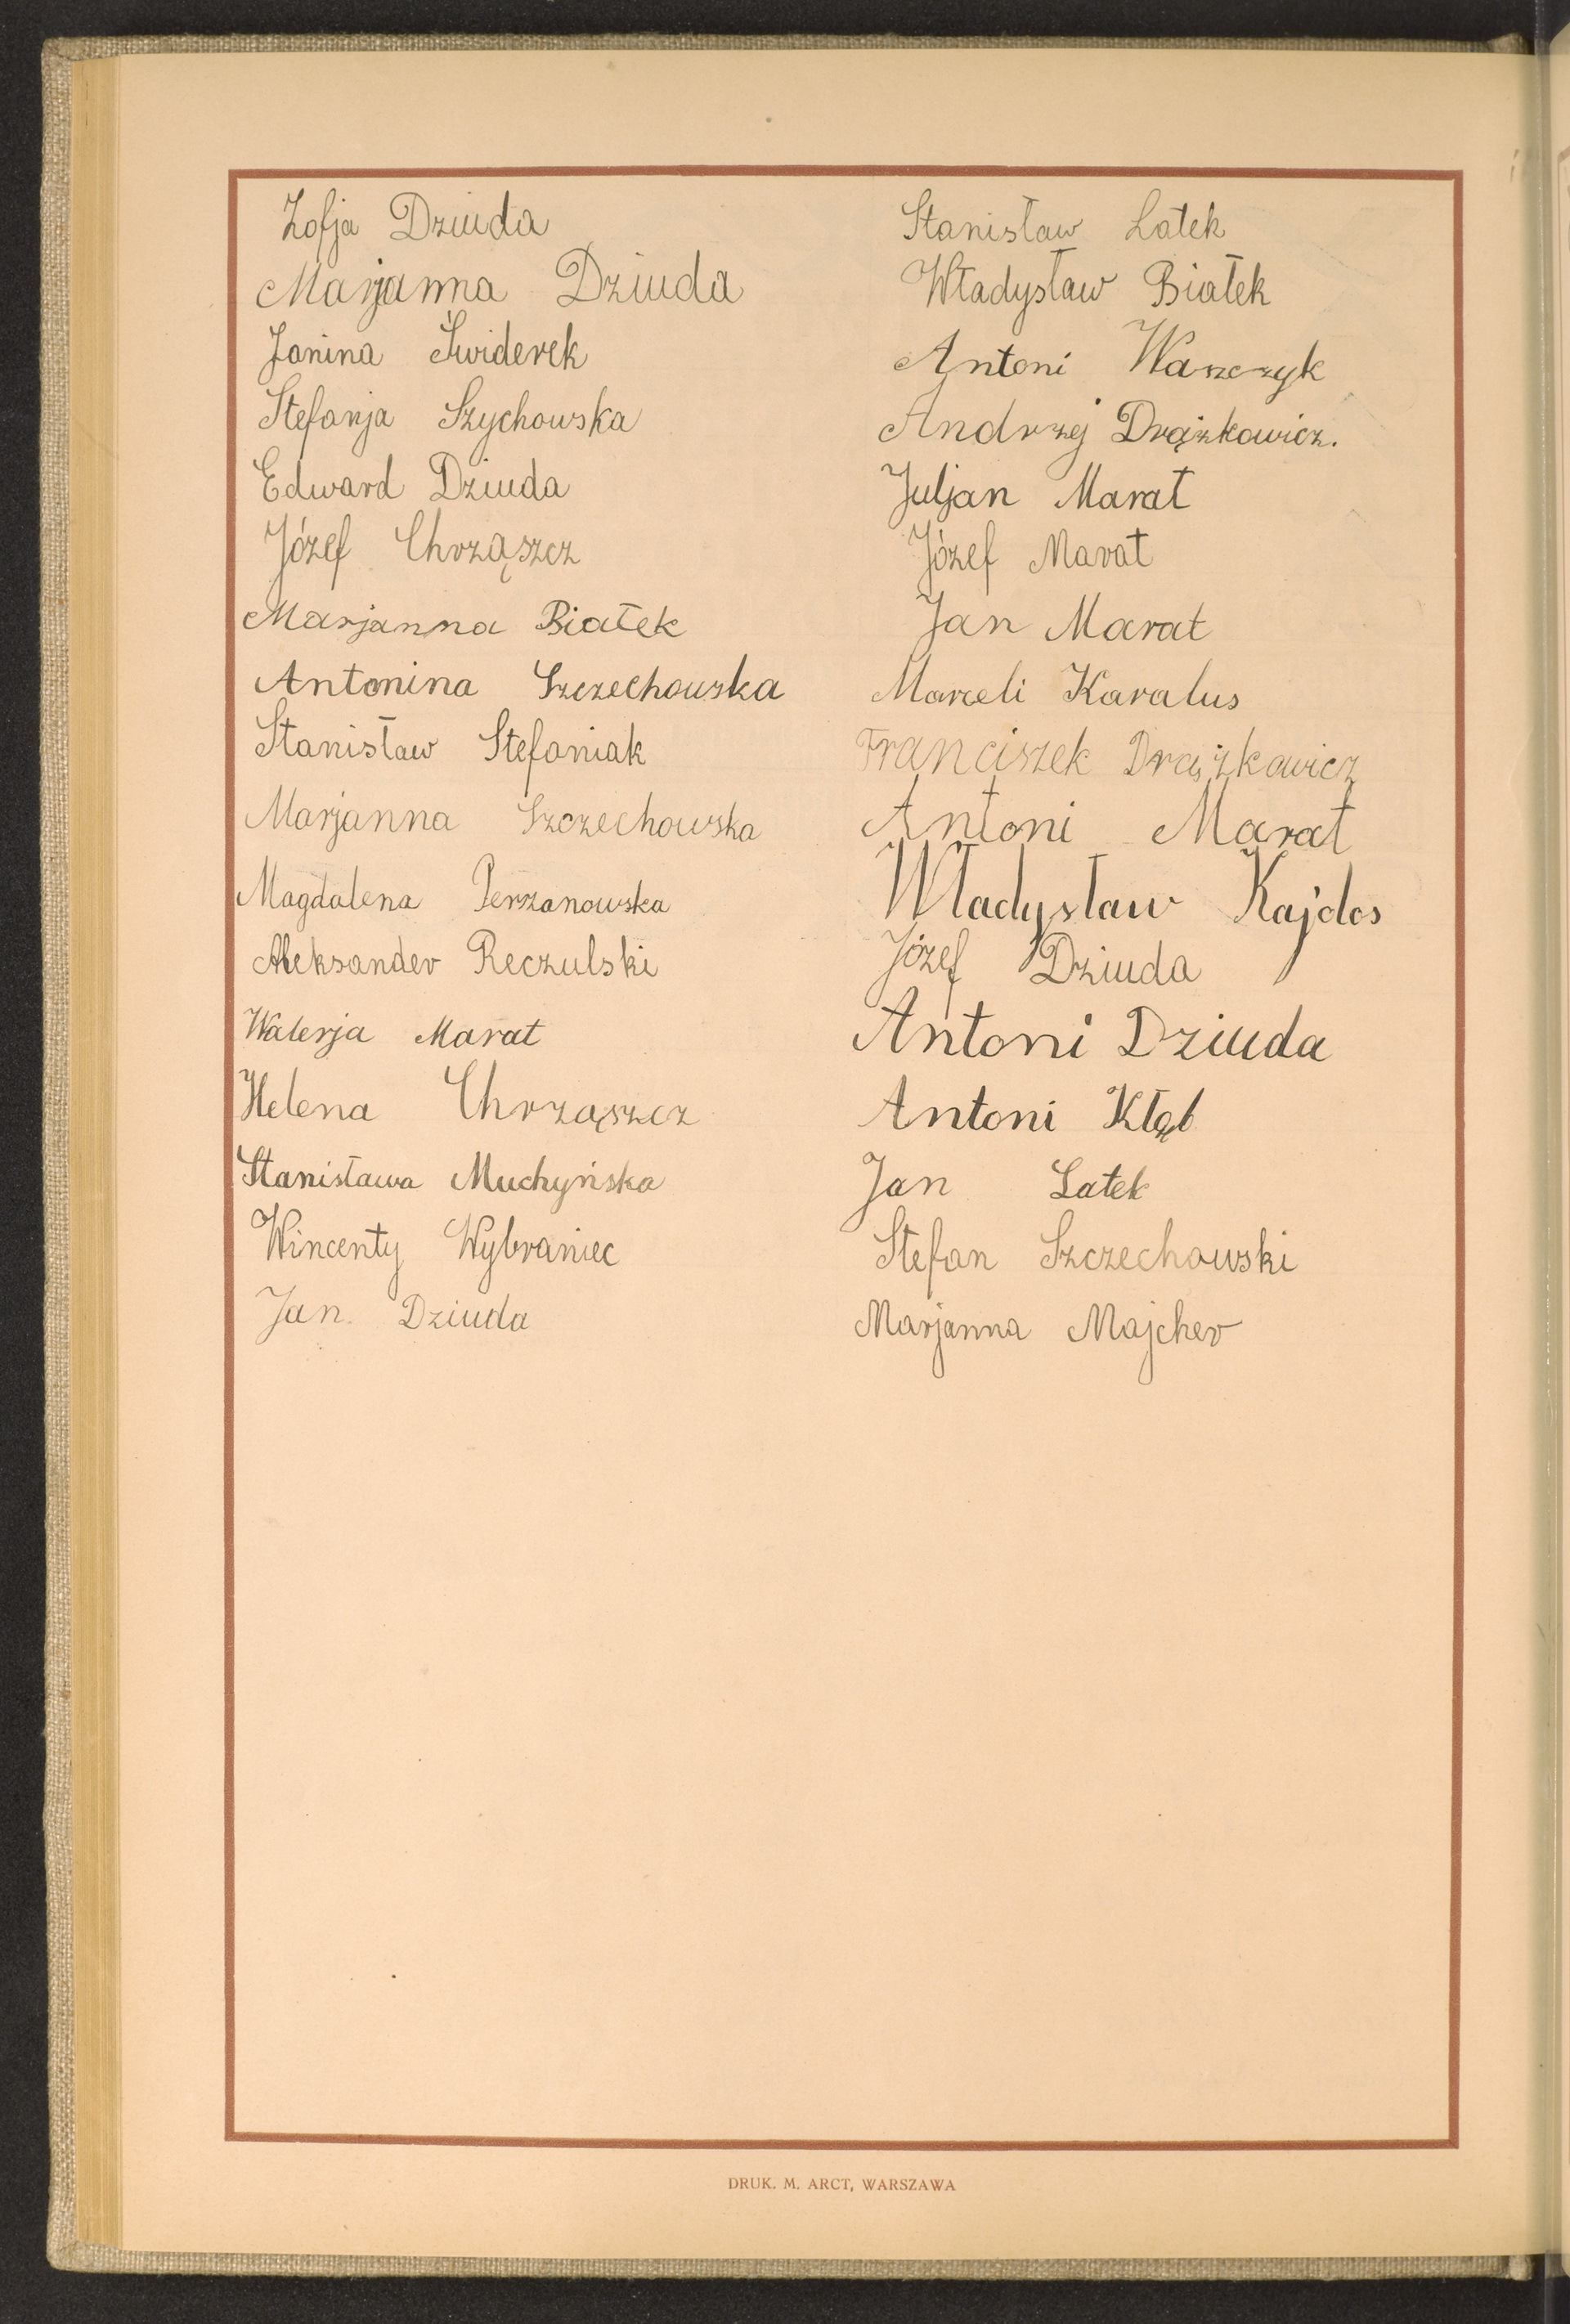 Zofja Dziuda
Marjanna Dziuda
Janina Świderek
Stefanja Szychowska
Edward Dziuda
Józef Chrząszcz
Marjanna Białek
Antonina Szczechowska
Stanisław Stefaniak
Marjanna Szczechowska
Magdalena Perzanowska
Aleksander Reczulski
Walerja Marat
Helena Chrząszcz
Stanisława Muchyńska
Wincenty Wybraniec
Jan. Dziuda
Stanisław Latek
Władysław Białek
Antoni Waszczyk
Andrzej Drążkowicz.
Juljan Marat
Józef Marat
Jan Marat
Marceli Karalus
Franciszek Drążkowicz
Antoni Marat
Władysław Kajdos
Józef Dziuda
Antoni Dziuda
Antoni Kłąb
Jan Latek
Stefan Szczechowski
Marjanna Majcher
DRUK. M. ARCT, WARSZAWA